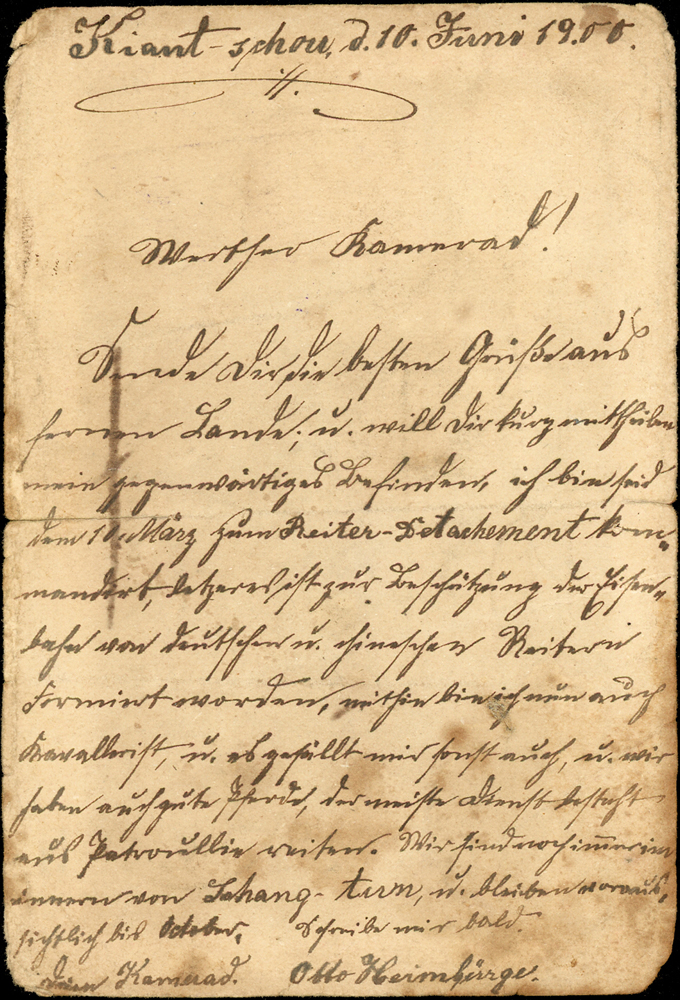 Kiant-schou, d. 10. Juni 19.00.
Werther Kamerad!
Sende Dir die besten Grüße aus
fernen Lande; u. will Dir kurz mittheilen
mein gegenwärtiges Befinden, ich bin seid
dem 10. März zum Reiter-Detachement kom-
mandirt, letzeres ist zur Beschützung der Eisen-
bahn von deutschen u. chineschen Reitern
Formiert worden, mithin bin ich nun auch
Kavallerist, u. es gefällt mir sonst auch, u. wir
haben auch gute Pferde, der meiste Dienst besteht
aus Patroullie reiten. Wir sind noch immer im
innern von Schang-tum, u. bleiben voraus-
sichtlich bis October. Schreibe mir bald.
Dein Kamerad. Otto Heimbürge.